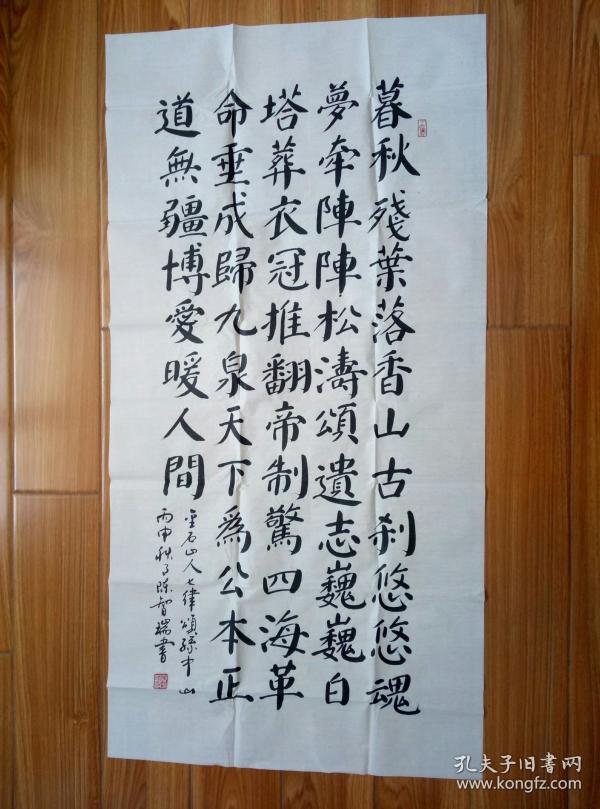 暮秋殘葉落香山古刹悠悠魂
夢牽陣陣松濤頌遺志巍巍白
塔葬衣冠推翻帝制驚四海革
命垂成歸九泉天下爲公本正
道無疆博愛暖人間
金石山人七律頌孫中山
丙申秋月陳智瑞書
孔夫子旧书网
www.kongfz.com